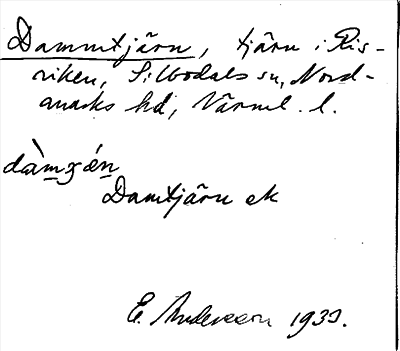 Dammtjärn, tjärn i Ris-
riken, Silbodals sn, Nord-
marks hd, Värml. l.
Damtjärn ek
E. Andersson 193